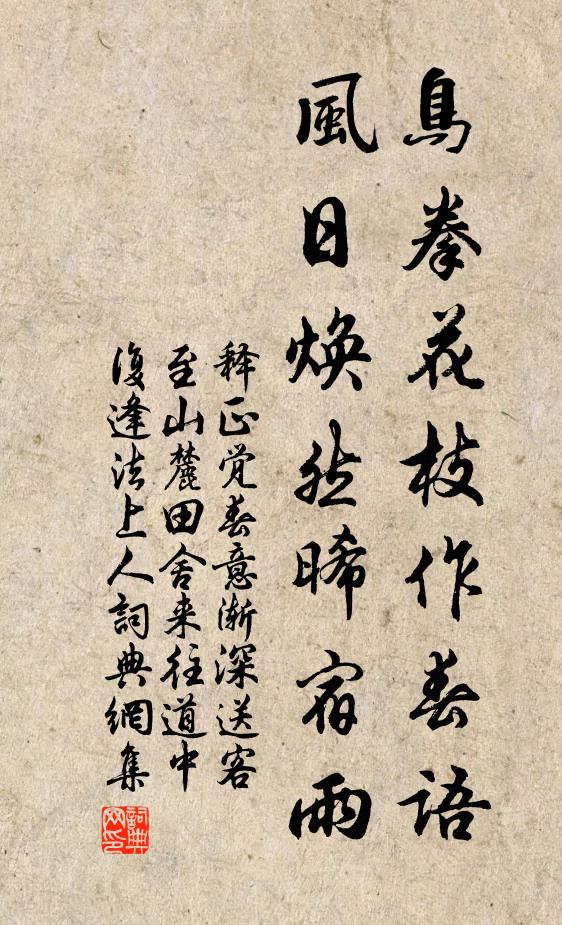 鳥拳花枝作春語
風日煥然晞宿雨
释正觉春意渐深送客
至山麓田舍来往道中
復逢法上人詞典網集
詞典网印